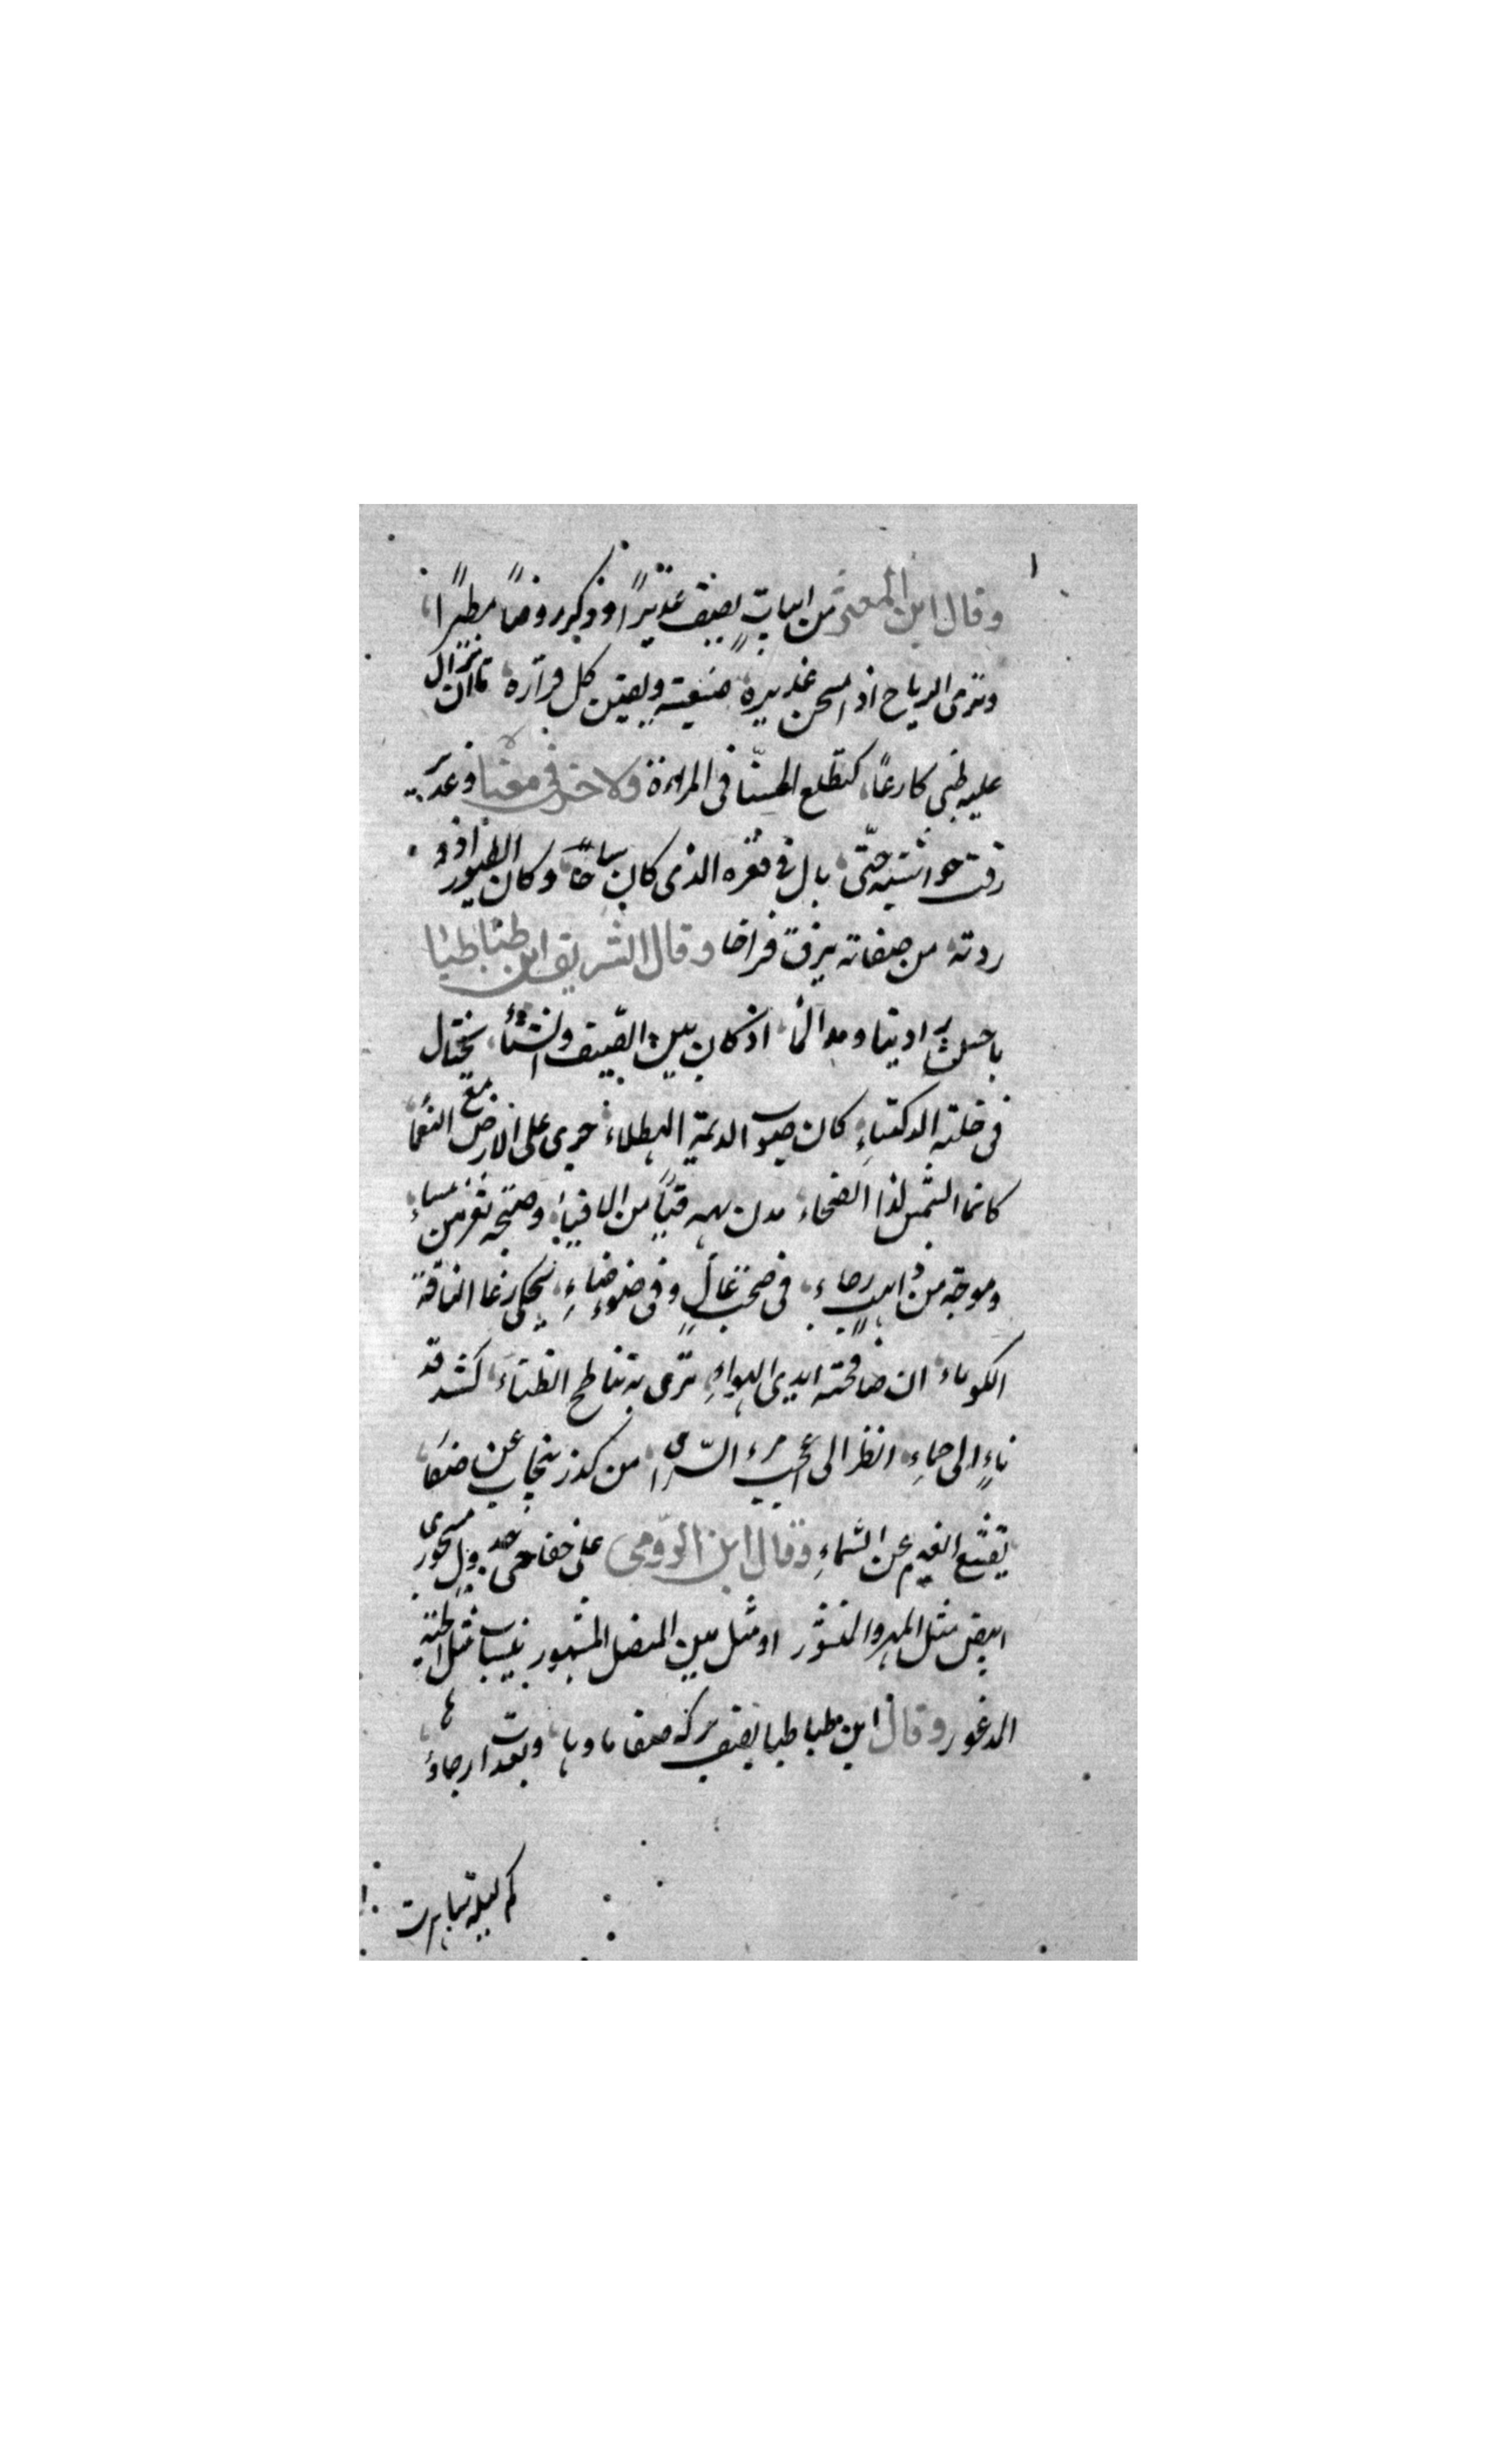 وقال ابن المعتز من ابيات يصف غديرًا وذكر روضًا مطيرًا
وترى الرياح اذا مسحن غديره صفيته ونفين كل قذاة ما ان يزال
عليه ظبي كارعًا كتطلع الحسنا في المراءة ولاخر في معنا وغدير
رقت حواشيه حتى بان في قعره الذي كان ساخًا وكان الطيور اذ و
ردته من صفاته يزق فراخا وقال الشريف ابن طباطبا
يا حسن وادينا ومد الما اذ كان بين الصيف والشتاء يختال
في حلته الدكناء كان صوب الديمة الهطلاء جرى على الارض مع النعما
كانما الشمس لذا الضحاء مدت به قنا من الافياء
وموجه من ذاهب وجاء في صخب عال وفي ضوضاء يحكي رغا الناقة
الكوماء ان صافحته ايدي الهواء ترى به تناطح الظباء
ناء الى جماء انظر الى اعجب مراء الرائي من كدر ينجاب عن صفاء
تقشع الغيم عن السماء وقال ابن الرومي على حفافي جدول مسجور
ابيض مثل المهرق المنشور او مثل متن المنصل المشهور ينساب مثل الحية
المذعور وقال ابن طباطبا يصف بركة صفا ماوها وبعدت ارجاؤها
كم ليلة ساهرت